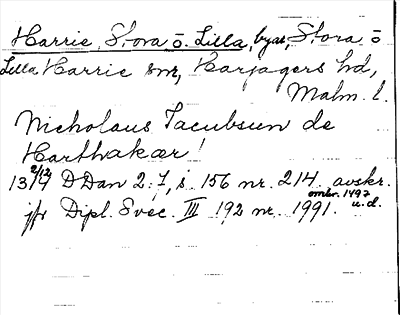 Harrie, Stora o. Lilla, byar, Stora o
Lilla Harrie snr, Harjagers hd,
Malm. l.
Nicholaus Jacubsun de
Harthakær!
13 2/12 19 DDan 2:7, s. 156 nr. 214 avskr.
omkr. 1492
jfr Dipl. Svec. III 192 nr. 1991. u.d.